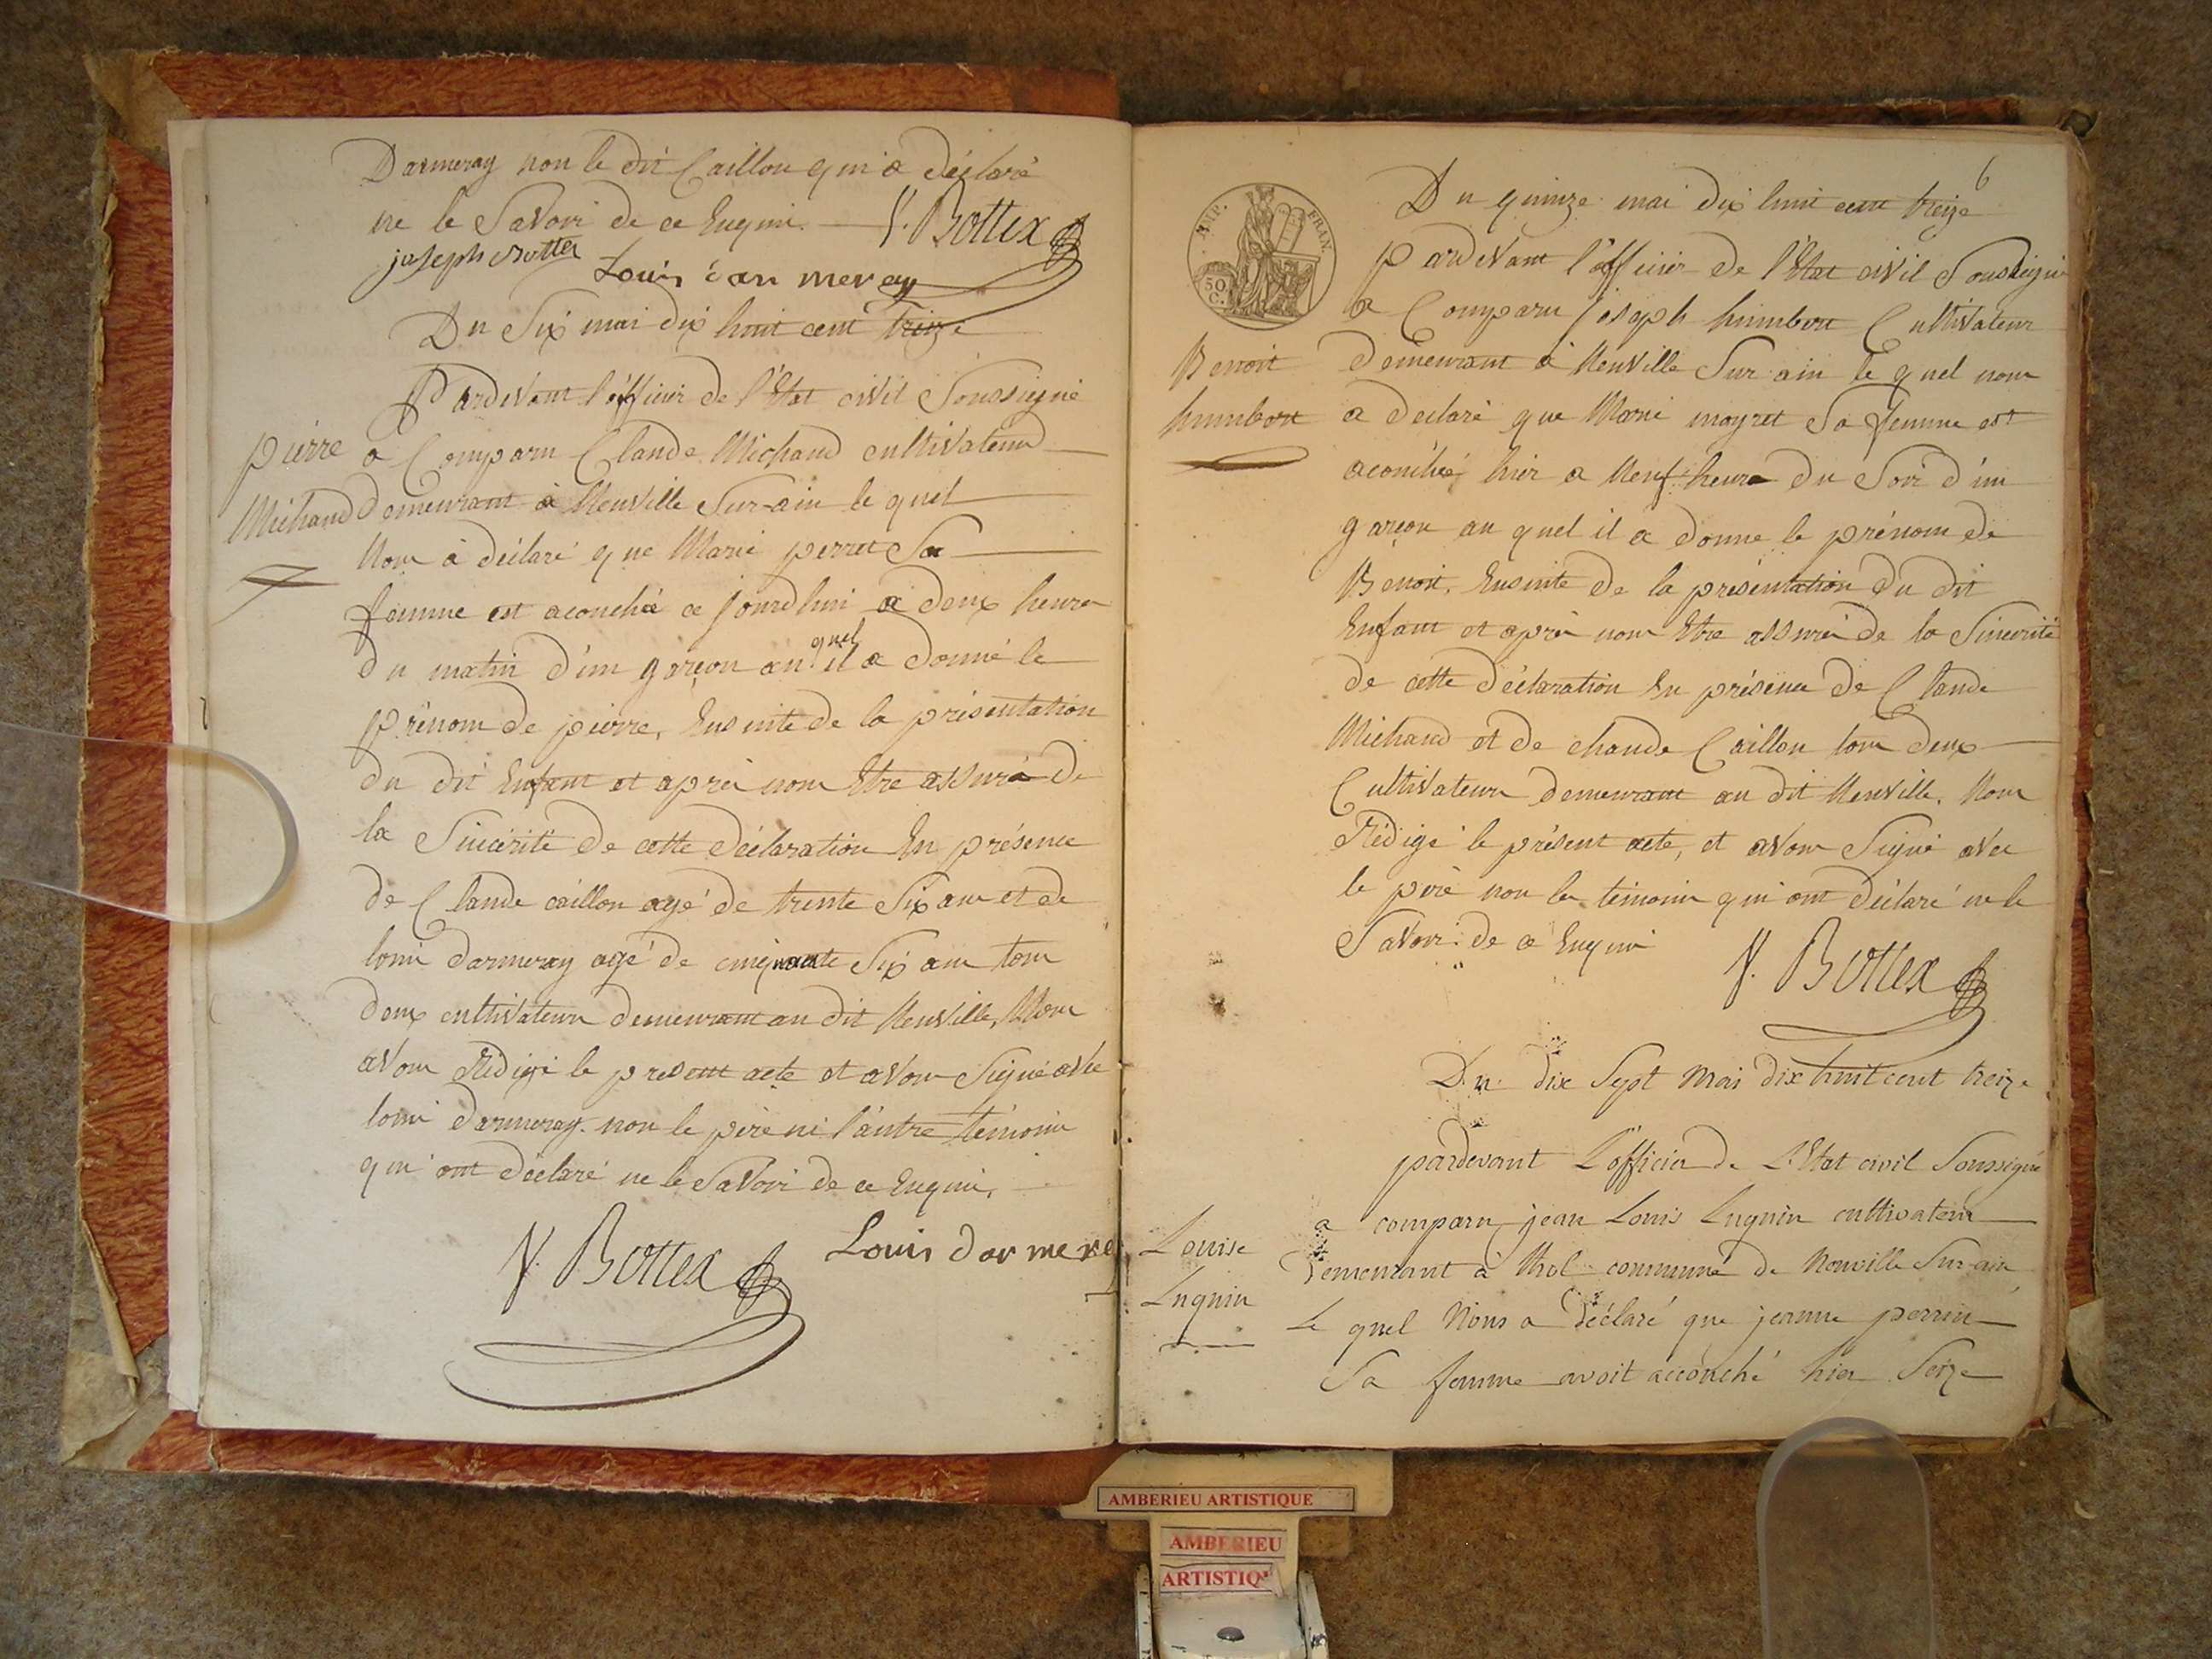 Darmeray non le dit Caillou qui a déclaré
ne le Savoir de ce Enquui. V. Bottex
joseph Bottex Louis dar meray
Du Six mai dix huit cent treize
Pardevant l'officier de l'Etat civil Soussigné
pierre
Michaud
a Comparu Claude Michaud cultivateur
demeurant à Neuville Sur-ain le quel
Nous à déclaré que Marie perret Sa
femme est acouchée ce jourdhui a deux heures
du matin d'un garçon au quel il a donné le
prénom de pierre, Ensuite de la présentation
du dit Enfant et après nous Etre assuré de
la Sincérité de cette déclaration En présence
de Claude caillou agé de trente Six ans et de
louis darmeray agé de cinquante Six ans tous
deux cultivateurs demeurant au dit Neuville, Nous
avons Rédigé le present acte et avons Signé avec
louis darmeray non le père ni l'autre témoin
qui ont déclaré ne le Savoir de ce Enquis,
V. Bottex Louis dar mere
6
IMP. FRAN.
50 C.
Du quinze mai dix huit cent treize
Pardevant l'officier de l'Etat civil Soussigné
a Comparu Joseph humbert Cultivateur
Benoit
humbert
demeurant à Neuville Sur ain le quel nous
a declaré que Marie mayret Sa femme est
acouchée hier a Neuf heures du Soir d'un
garçon au quel il a donne le prénom de
Benoit, Ensuite de la présentation du dit
Enfant et après nous Etre assuré de la Sincerité
de cette déclaration En présence de Claude
Michaud et de claude Caillou tous deux
Cultivateurs demeurant au dit Neuville. Nous
Rédigé le présent acte, et avons Signé avec
le père non les témoins qui ont déclaré ne le
Savoir de ce Enquis
V. Bottex
Du dix Sept Mai dix huit cent treize
pardevant L'officier de L'Etat civil Soussigné
Louise
Luquin
a comparu jean Louis Luquin cultivateur
demeurant à Thol commune de Neuville Sur ain
Le quel Nous a déclaré que jeanne perrin
Sa femme avoit accouché hier Seize
AMBERIEU ARTISTIQUE
AMBERIEU
ARTISTIQ